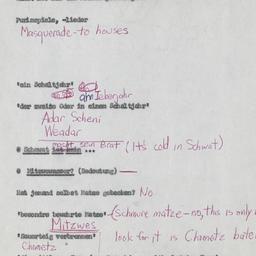 Purimspiele, -lieder
Masquerade - to houses
"ein Schaltjahr"
ein Ieberjohr
"der zweite Oder in einem Schaltjahr"
Adar Scheni
Weadar
@ Schewat ist kein ...
macht sein Brat (It's cold in Schwat)
@ Mitzwewasser? (Bedeutung) —
Hat jemand selbst Matze gebacken? No
"besondre bewahrte Matze" (Schmire matze - no, this is only
Mitzwes
"Sauerteig verbrennen" look for it is Chametz bate
Chametz